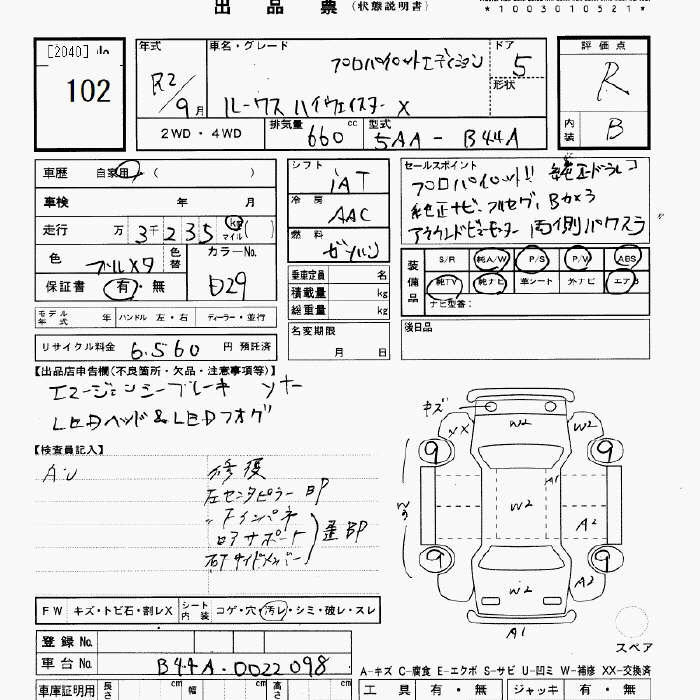 出品票（状態説明書）
*1003010521*
[2040]
102
年式 R2/9月
車名・グレード プロパイロットエディション
ルークス ハイウェイスター X
ドア 5
形状
評価点 R
内装 B
2WD・4WD
排気量 660 cc
型式 5AA-B44A
車歴 自家用 （ ）
車検 年 月
走行 万 3千235 km マイル ( )
色 ブルーメタ 色替
カラーNo. D29
保証書 有・無
モデル年式 年 ハンドル 左・右 ディーラー・並行
リサイクル料金 6,560 円 預託済
シフト IAT
冷房 AAC
燃料 ガソリン
乗車定員 名
積載量 kg
総重量 kg
名変期限 月 日
セールスポイント 純正ドラレコ
プロパイロット!!
純正ナビ・フルセグ・Bカメラ
アラウンドビューモニター 両側パワスラ
装備品 S/R 純A/W P/S P/V ABS
純TV 純ナビ 革シート 外ナビ エアB
ナビ型番：
後日品
【出品店申告欄(不良箇所・欠品・注意事項等)】
エマージェンシーブレーキ ソナー
LEDヘッド&LEDフォグ
【検査員記入】
AU 修復
左センタピラー BP
〃 インパネ
コアサポート
右F サイドメンバー
歪BP
キズ
XX W2 W2
9 9
A1
W2
W2
A2
9 9
W2
A2
A1
スペア
FW キズ・トビ石・割レX シート内装 コゲ・穴・汚レ・シミ・破レ・スレ
登録 No.
車台 No. B44A-0022098
車庫証明用 長さ cm 幅 cm 高さ cm
A-キズ C-腐食 E-エクボ S-サビ U-凹ミ W-補修 XX-交換済
工具 有・無 ジャッキ 有・無